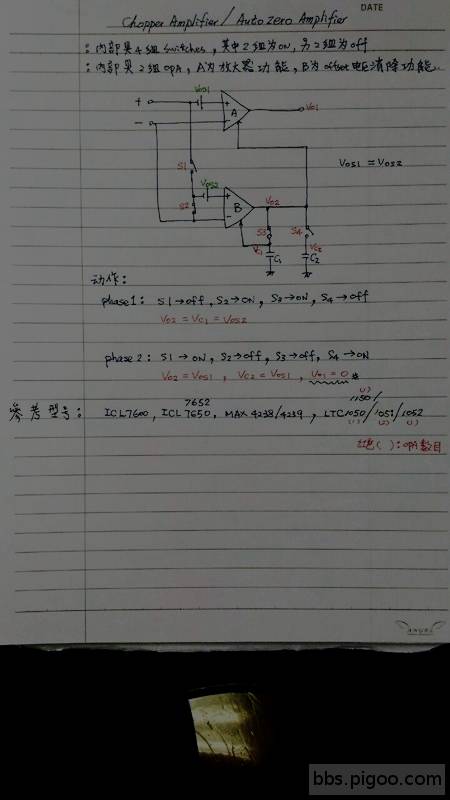 DATE
Chopper Amplifier / Auto Zero Amplifier
: 內部具4組switches, 其中2組為on, 另2組為off
: 內部具2組OPA, A為放大器功能, B為offset電壓清除功能..
VOS1
+
+
A
VO1
−
−
VOS1 = VOS2
S1
VOS2
+
S2
B
VO2
−
S3
S4
VC1
C1
VC2
C2
动作:
phase1: S1→off, S2→ON, S3→ON, S4→off
VO2 = VC1 = VOS2
phase 2: S1→ON, S2→off, S3→off, S4→ON
VO2 = VOS1, VC2 = VOS1, VO1 = 0 #
7652
(1)
1150/
參考型号: ICL7600, ICL7650, MAX4238/4239, LTC1050/1051/1052
(1) (2) (1)
紅色( ): OPA數目
ANGEL
bbs.pigoo.com